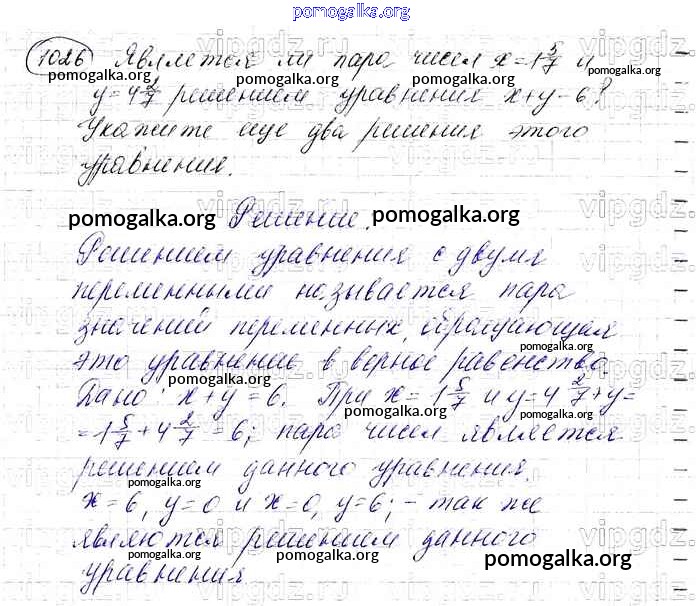 pomogalka.org
1026 Является ли пара чисел x=1 5/7 и
y=4 2/7 решением уравнения x+y=6?
Укажите еще два решения этого
уравнения.
pomogalka.org Решение. pomogalka.org
Решением уравнения с двумя
переменными называется пара
значений переменных, обращающая
это уравнение в верное равенство
pomogalka.org pomogalka.org pomogalka.org
Дано: x+y=6. При x=1 5/7 и y=4 2/7 x+y=
pomogalka.org
=1 5/7+4 2/7=6; пара чисел является
решением данного уравнения.
pomogalka.org pomogalka.org
x=6, y=0 и x=0, y=6; – так же
pomogalka.org pomogalka.org
являются решением данного
pomogalka.org pomogalka.org pomogalka.org
уравнения
pomogalka.org
vipgdz.ru